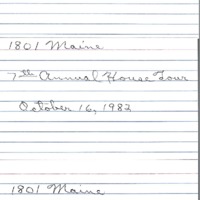 1801 Maine
7th Annual House Tour
October 16, 1982
1801 Maine